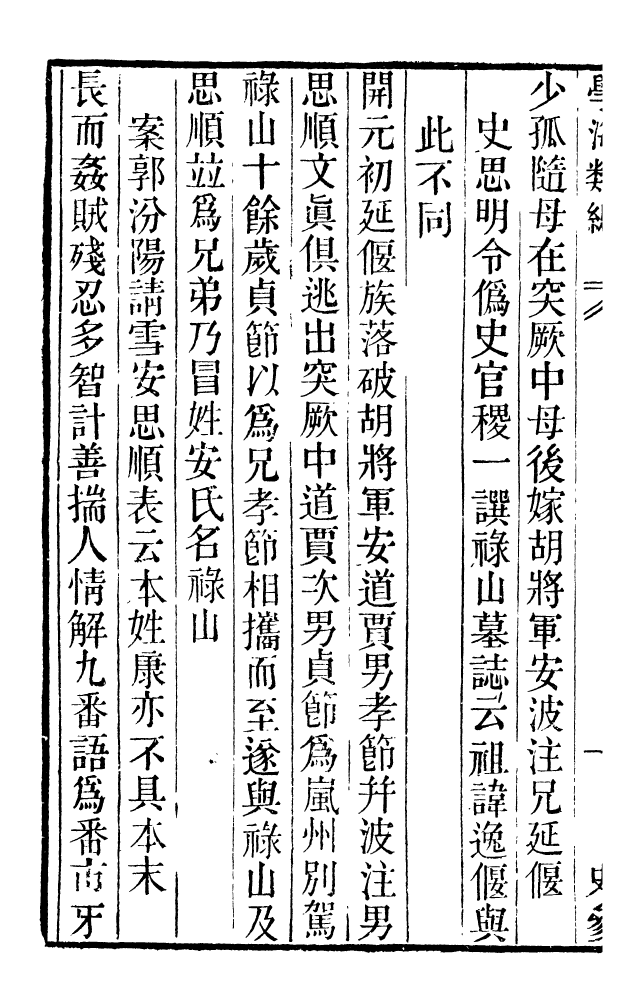 學海類編
一
史參
少孤隨母在突厥中母後嫁胡將軍安波注兄延偃
史思明令僞史官稷一譔祿山墓誌云祖諱逸偃與
此不同
開元初延偃族落破胡將軍安道賈男孝節幷波注男
思順文眞俱逃出突厥中道賈次男貞節爲嵐州別駕
祿山十餘歲貞節以爲兄孝節相攜而至遂與祿山及
思順並爲兄弟乃冒姓安氏名祿山
案郭汾陽請雪安思順表云本姓康亦不具本末
長而姦賊殘忍多智計善揣人情解九番語爲番市牙